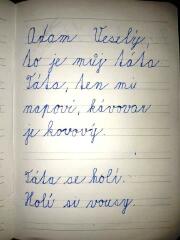 Adam Veselý,
to je můj táta
Táta, ten mi
napoví, kávovar
je kovový.
Táta se holí.
Holí si vousy.